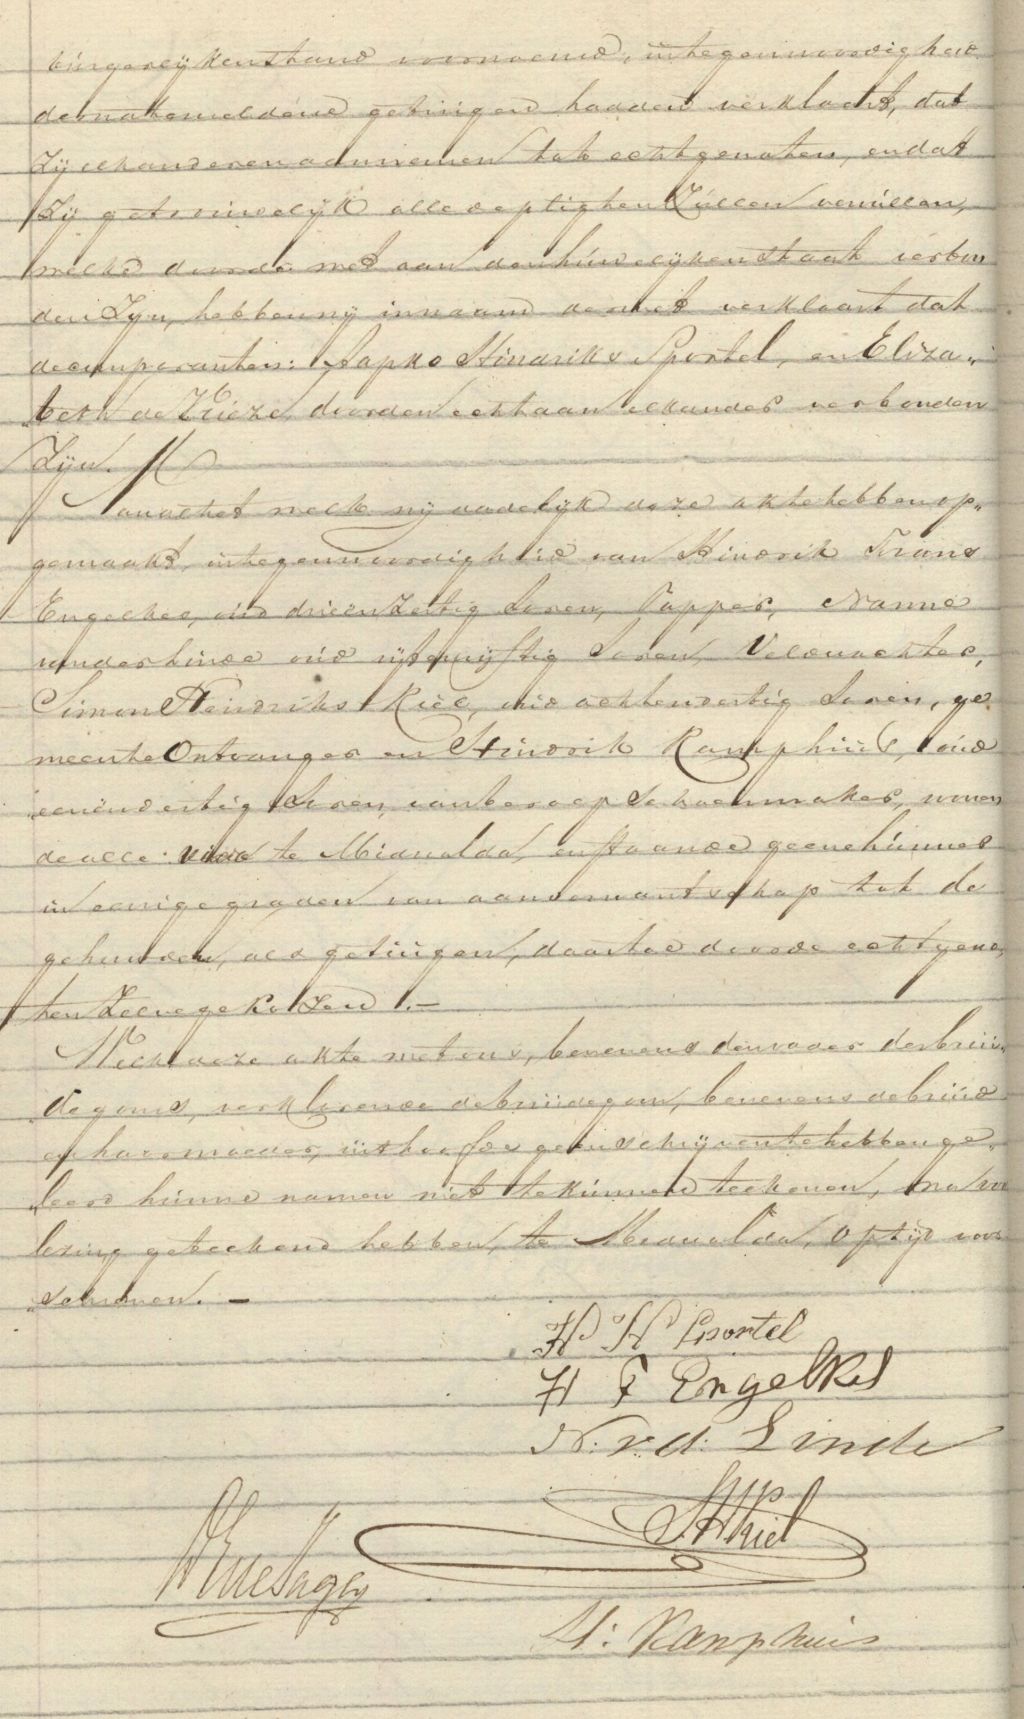 burgerlyken stand voornoemd, in tegenwoordigheid
de natemeldene getuigen hadden verklaard, dat
Zij elkanderen aannemen tot echtgenoten, en dat
Zij getrouwelyk alle de pligten Zullen vervullen,
welke door de wet aan den huwelyken staat verbon
den Zyn, hebben wij in naam der wet verklaart dat
de comparanten: Aapko Hindriks Sportel, en Eliza-
beth de Vrieze, door den echt aan elkander verbonden
Zyn.
Van al het welk wij dadelijk deze akte hebben op-
gemaakt, in tegenwoordigheid van Hindrik Frans
Engelkes, oud drieenzestig Jaren, Tapper, Nanno
van der Linde oud vijfenvijftig Jaren, Veldwachter,
Simon Heindriks Kiel, oud achtendertig Jaren, ge
meente Ontvanger en Hindrik Kamphuis, oud
eenendertig Jaren, van beroep Schoenmaker, wonen
de alle te Midwolda, en staande geene hunner
in eenige graden van aanverwantschap tot de
gehuwden, als getuigen, daartoe door de echtgeno-
ten Zelve gekozen. —
Welk deze akte met ons, benevens den vader des brui-
degoms, verklarende de bruidegom, benevens de bruid
en hare moeder, uit hoofde geen schryven te hebben ge-
leerd hunne namen niet te kunnen teekenen, na voor
lezing geteekend hebben, te Midwolda, op tijd voor
schreven. —
H H Sportel
H F Engelkes
N: v. d: Linde
SHKiel
H: Kamphuis